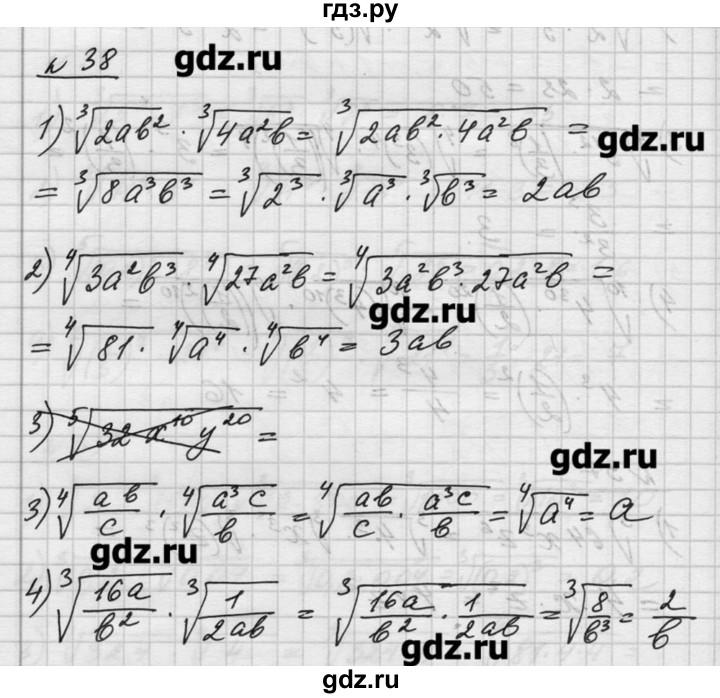 гдз.ру
№ 38 gdz.ru
1) ∛(2ab²) · ∛(4a²b) = ∛(2ab² · 4a²b) =
gdz.ru
= ∛(8a³b³) = ∛(2³) · ∛(a³) · ∛(b³) = 2ab
2) ∜(3a²b³) · ∜(27a²b) = ∜(3a²b³ 27a²b) =
gdz.ru
= ∜81 · ∜(a⁴) · ∜(b⁴) = 3ab
3) ⁵√(32 x¹⁰ y²⁰) =
gdz.ru
3) ∜(ab/c) · ∜(a³c/b) = ∜(ab/c · a³c/b) = ∜(a⁴) = a
gdz.ru
4) ∛(16a/b²) · ∛(1/2ab) = ∛(16a/b² · 1/2ab) = ∛(8/b³) = 2/b
gdz.ru
gdz.ru